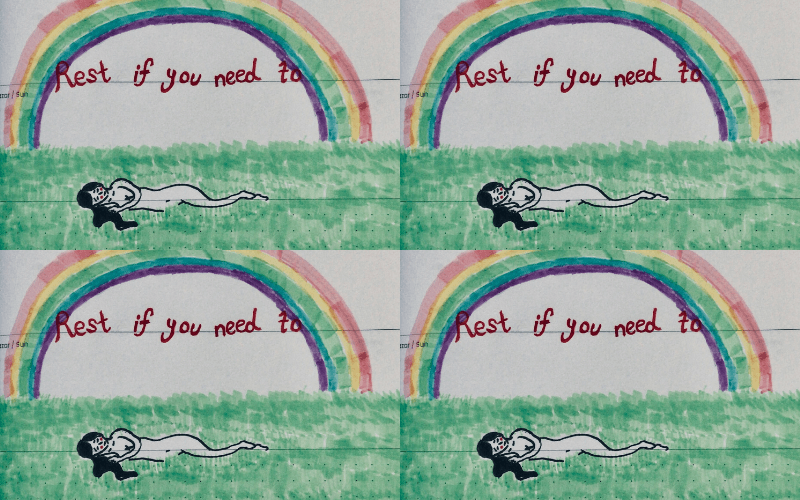 Rest if you need to
Rest if you need to
/ Sun
/ Sun
Rest if you need to
Rest if you need to
/ Sun
/ Sun